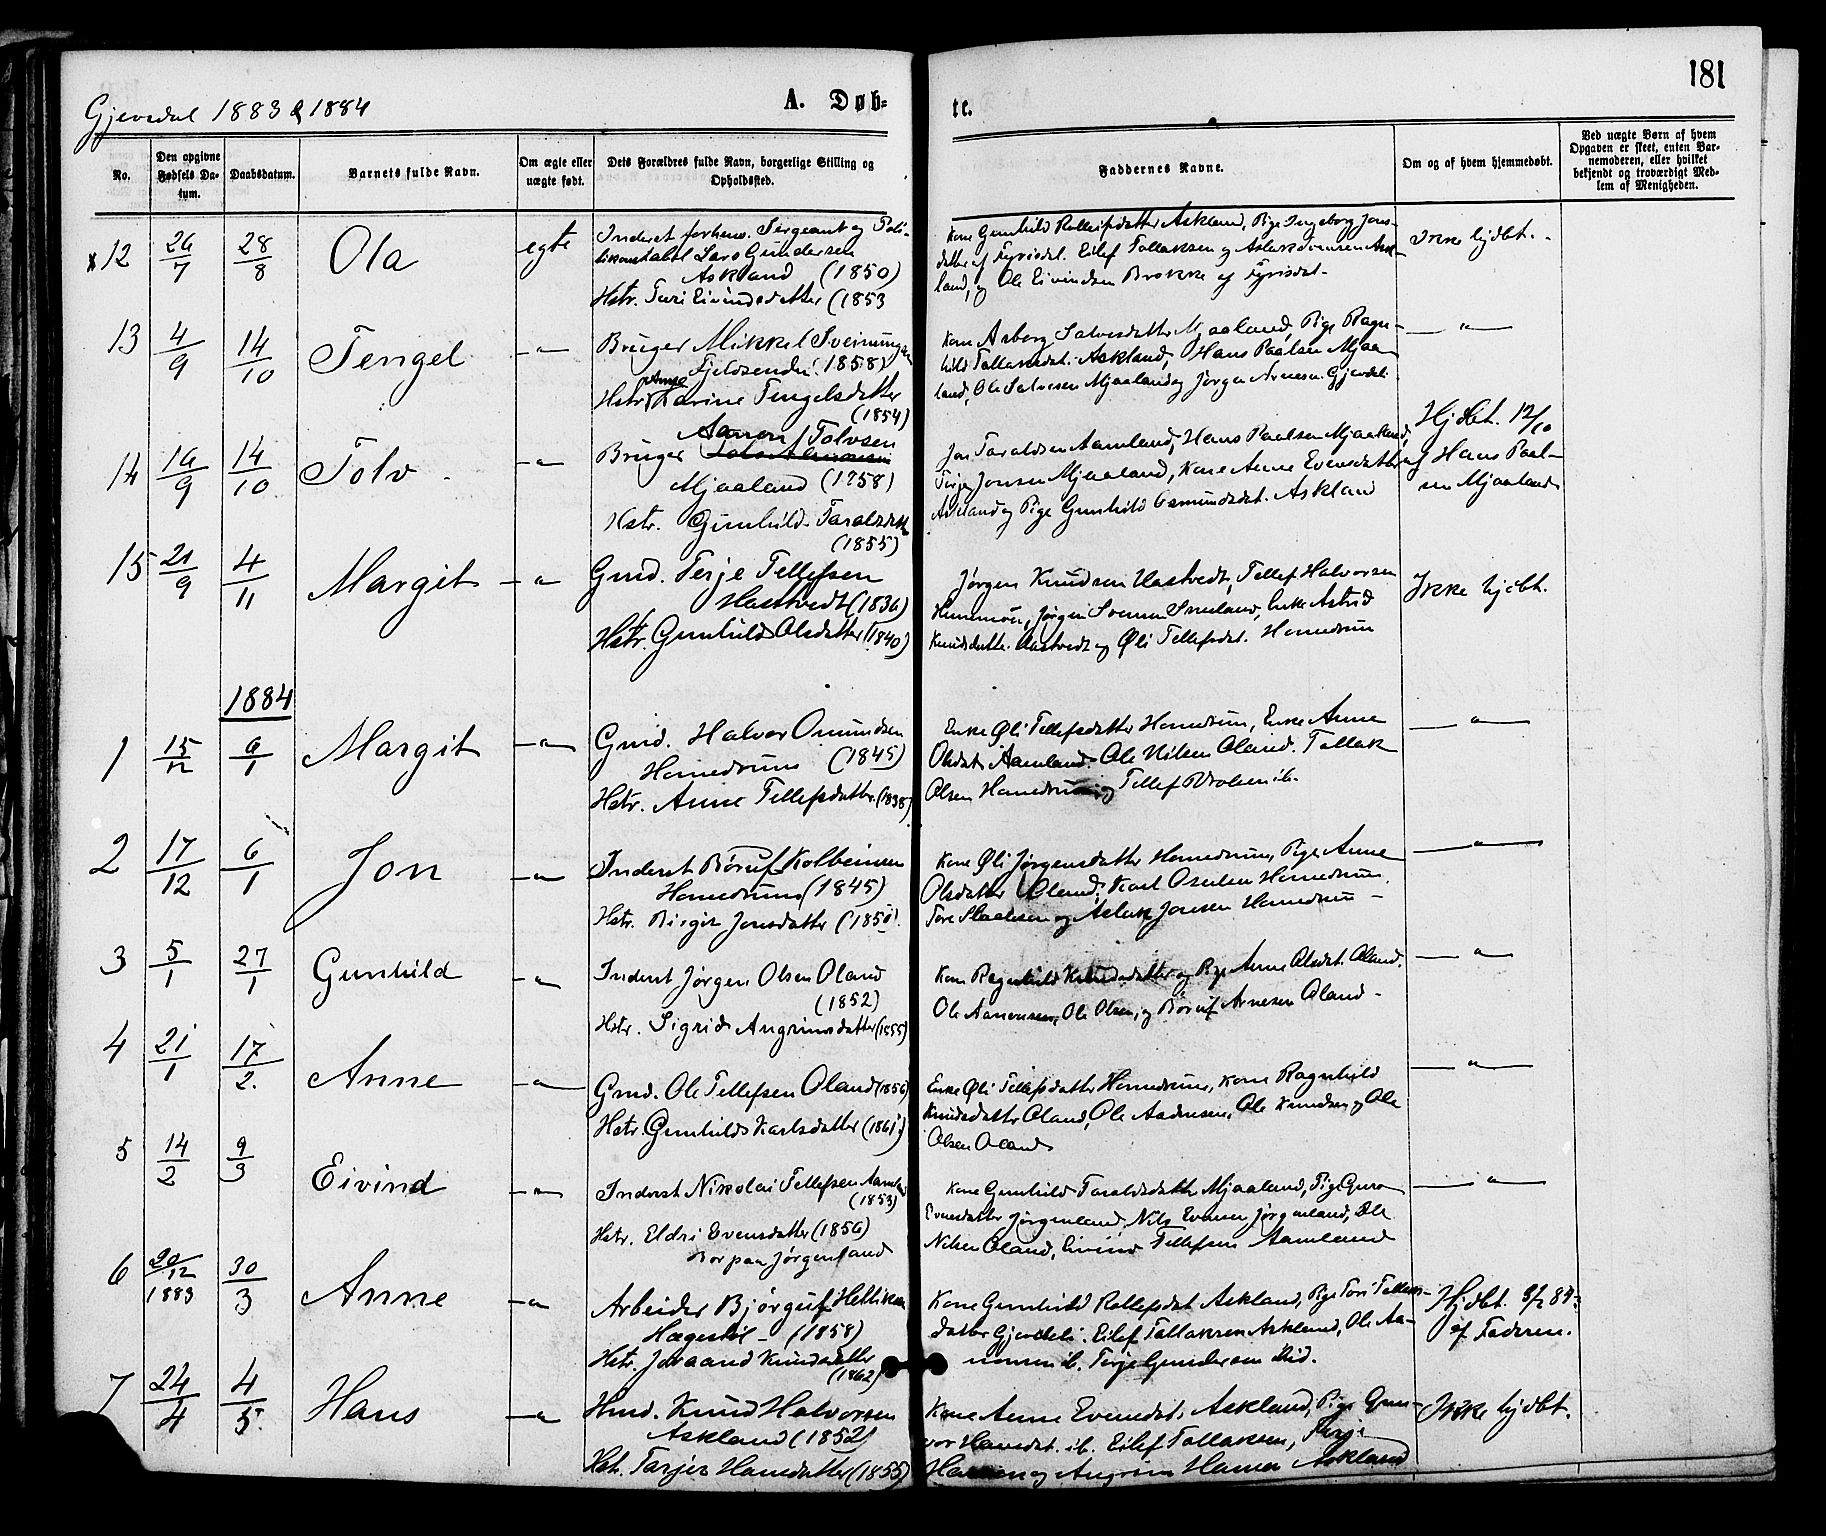 Gjevedal 1883 & 1884
A. Døb-
te.
181
No.
Den opgivne Fødsels Da-tum.
Daabsdatum.
Barnets fulde Navn.
Om ægte eller uægte født.
Dets Forældres fulde Navn, borgerlige Stilling og Opholdssted.
Faddernes Navne.
Om og af hvem hjemmedøbt.
Ved uægte Børn af hvem Opgaven er skeet, enten Bar-nemoderen, eller hvilket bekjendt og troværdigt Med-lem af Menigheden.
12 26/7 28/8 Ola egte
Inderst forhenv. Sergeant og Poli-
tikonstabel Lars Gundersen
Askland (1850)
Hstr. Turi Eivindsdatter (1853
Kone Gunhild Rolleifsdatter Askland, Pige Ingeborg Jons-
datter af Fyrisdal. Eilef Tallaksen og Aslak Askland,
og Ole Eivindsen Brokke af Fyrisdal.
Ikke hjdbt.
13 4/9 14/10 Tengel — " —
Bruger Mikkel Sveinungsen
(1858)
Hstr. Anne Karine Tengelsdatter
(1854)
Kone Asborg Salvesdatter Mjaaland, Pige Ragn-
hild Tallaksdat. Askland, Hans Paalsen Mjaa-
land, Ole Salvesen Mjaaland og Jørgen Arnesen Gjevdeli
— " —
14 19/9 14/10 Tolv — " —
Aanon Tolvsen
Bruger
Mjaaland (1858)
Hstr. Gunhild Taraldsdat
(1855)
Jon Taraldsen Aamland, Hans Paalsen Mjaaland,
Jonsen Mjaaland, Kone Anne Evensdatter
Askland og Pige Gunhild Osmundsdat. Askland
Hjdbt. 12/10
af Hans Paal-
sen Mjaaland
15 21/9 4/11 Margit — " —
Gmd. Terje Tellefsen
Haatvedt (1836)
Hstr. Gunhild Olsdatter (1840)
Jørgen Knudsen Haatvedt, Tellef Halvorsen
Jørgen Enke Astrid
Knudsdatter Haatvedt og Øli Tellefsdat. Homdrum
Ikke hjdbt.
1884
1 15/12 6/1 Margit — " —
Gmd. Halvor Omundsen
Homdrum (1845)
Hstr. Anne Tellefsdatter (1838)
Enke Øli Tellefsdatter Homdrum, Enke Anne
Olsdat. Aamland. Ole Nilsen Oland. Tallak
Olsen Homdrum og Tellef ib.
— " —
2 17/12 6/1 Jon — " —
Inderst Børuf Kolbeinsen
Homdrum (1845)
Hstr. Birgit Jonsdatter (1850)
Kone Øli Jørgensdatter Homdrum, Pige Anne
Olsdatter Oland, Karl Homdrum,
Tore og Aslak Jonsen Homdrum
— " —
3 5/1 27/1 Gunhild — " —
Inderst Jørgen Olsen Oland
(1852)
Hstr. Sigrid Angrimsdatter (1855)
Kone Ragnhild Knudsdatter og Pige Anne Olsdat. Oland.
Ole Aanonsen, Ole Olsen, og Børuf Arnesen Oland
— " —
4 21/1 17/2 Anne — " —
Gmd. Ole Tellefsen Oland (1856)
Hstr. Gunhild Karlsdatter (1861)
Enke Øli Tellefsdatter Homdrum, Kone Ragnhild
Knudsdatter Oland, Ole Aadnesen, Ole Knudsen og Ole
Olsen Oland
— " —
5 14/2 9/3 Eivind — " —
Inderst Nikolai Tellefsen Aamland
(1853)
Hstr. Eldri Evensdatter (1856)
Bor paa Jørgenland
Kone Gunhild Taraldsdatter Mjaaland, Pige Guro
Evensdatter Jørgenland, Nils Evensen Jørgenland, Ole
Nilsen Oland, Eivind Tellefsen Aamland
— " —
6 20/12 1883 30/3 Anne — " —
Arbeider Bjørguf
Hægestøl (1858)
Hstr. Joraand Knudsdatter
(1862)
Kone Gunhild Rollefsdat Askland, Pige Tori Tallaks-
datter Gjevdeli. Eilef Tallaksen Askland, Ole Aa-
nonsen ib. Terje Gundersen ibid.
Hjdbt.
af Faderen.
7 24/4 4/5 Hans — " —
Gmd. Knud Halvorsen
Askland (1852)
Hstr. Tarjer Hansdatter (1855)
Kone Anne Evensdat. Askland, Pige Gun-
vor Hansdat. ib. Eilef Tallaksen, Terje
Hansen og Angrim Hansen Askland
Ikke hjdbt.